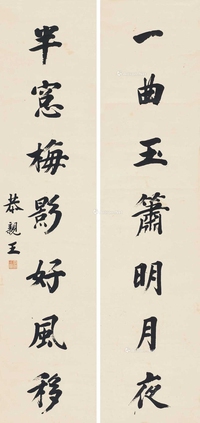 一曲玉簫明月夜
半窓梅影好風移
恭親王